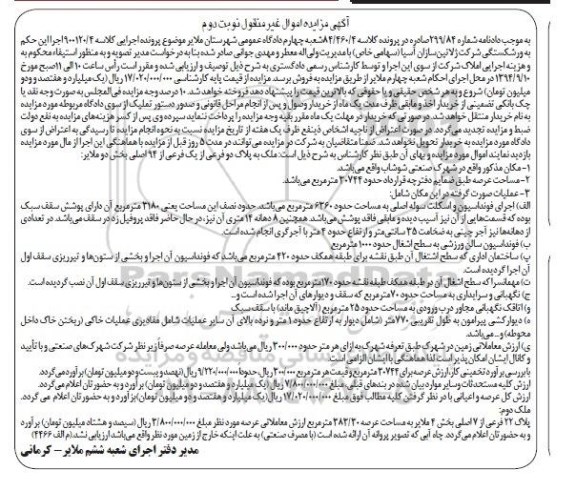 آگهی مزایده اموال غیر منقول نوبت دوم
به موجب دادنامه شماره ۲۹۹/۸۴ صادره در پرونده کلاسه ۸۲/۴۶۰/۴ شعبه چهارم دادگاه عمومی شهرستان ملایر موضوع پرونده اجرایی کلاسه ۹۰۰۱۲۰/۴ اجرا این حکم
به ورشکستگی شرکت ژلاتین سازان آسیا (سهامی خاص) با مدیریت ولی اله معطر و مهدی جوانی صادر شده بنا به درخواست مدیر تصویه و به منظور استیفاء محکوم به
و هزینه اجرایی املاک شرکت از سوی این اجرا و توسط کارشناس رسمی دادگستری به شرح ذیل توصیف و ارزیابی شده و مقرر است رأس ساعت ۱۰ الی ۱۱ صبح مورخ
۱۳۹۴/۹/۱۰ در محل اجرای احکام شعبه چهارم ملایر از طریق مزایده به فروش برسد. مزایده از قیمت پایه کارشناسی ۱۷/۰۲۰/۰۰۰/۰۰۰ ریال (یک میلیارد و هفتصد و دو
میلیون تومان) شروع و به هر شخص حقیقی و یا حقوقی که بالاترین قیمت را پیشنهاد دهد فروخته خواهد شد. ۱۰ درصد وجه مزایده فی المجلس به صورت وجه نقد یا
چک بانکی تضمینی از خریدار اخذ و مابقی ظرف مدت یک ماه از خریدار وصول و پس از انجام مراحل قانونی و صدور دستور تملیک از سوی دادگاه مربوطه مورد مزایده
به نام خریدار منتقل خواهد شد. در صورتی که خریدار در مهلت یک ماه مقرر بقیه وجه مزایده را پرداخت ننماید سپرده وی پس از کسر هزینه های مزایده به نفع دولت
ضبط و مزایده تجدید می گردد. در صورت اعتراض از ناحیه اشخاص ذینفع ظرف یک هفته از تاریخ مزایده نسبت به نحوه انجام مزایده تا رسیدگی به اعتراض از سوی
دادگاه مورد مزایده به خریدار تحویل نخواهد شد. ضمنا متقاضیان به شرکت در مزایده می توانند در مدت ۵ روز قبل از مزایده با هماهنگی این اجرا از مال مورد مزایده
بازدید نمایند اموال مورد مزایده و بهای آن طبق نظر کارشناس به شرح ذیل است: ملک به پلاک دو فرعی از یک فرعی از ۹۴ اصلی بخش دو ملایر:
۱- مکان مذکور واقع در شهرک صنعتی شوشاب واقع می باشد.
۲- مساحت عرصه طبق ضمایم دفترچه قرارداد حدود ۳۰۷۴۴ مترمربع می باشد.
۳- عملیات صورت گرفته در این مکان شامل:
الف) اجرای فونداسیون و اسکلت سوله اصلی به مساحت حدود ۶۳۶۰ مترمربع می باشد. حدود نصف این مساحت یعنی ۳۱۸۰ مترمربع آن دارای پوشش سقف سبک
بوده که قسمت هایی از آن نیز آسیب دیده و مابقی فاقد پوشش می باشد. همچنین ۸ دهانه ۱۲ متری آن نیز، در حال حاضر فاقد پروفیل زد در سقف می باشد. در تعدادی
از دهانه ها نیز آجر چینی به ضخامت ۳۵ سانتی متر و ارتفاع حدود ۴ متر با آجرگری انجام شده است.
ب) فونداسیون سالن ورزشی به سطح اشغال حدود ۱۰۰۰ مترمربع
پ) ساختمان اداری که سطح اشغال آن طبق نقشه برای طبقه همکف حدود ۴۲۰ مترمربع می باشد که فونداسیون آن اجرا و بخشی از ستون ها و تیرریزی سقف اول
آن اجرا گردیده است.
ت) مهمانسرا که سطح اشغال آن در طبقه همکف طبقه نقشه حدود ۱۷۰ مترمربع بوده که فونداسیون آن اجرا و بخشی از ستون ها و تیرریزی سقف اول آن نصب گردیده است.
ج) نگهبانی و سرایداری به مساحت حدود ۷۰ مترمربع که سقف و دیوارهای آن اجرا شده است و...
و) اتاقک نگهبانی مجاور درب ورودی به مساحت حدود ۲۵ مترمربع (آلاچیق ماند) با سقف سبک
ه) دیوارکشی پیرامون به طول تقریبی ۷۷۰ متر (شامل دیوار به ارتفاع حدود ۱ متر و نرده بالای آن سایر عملیات شامل مقادیری عملیات خاکی (ریختن خاک داخل
محوطه) و... می باشد.
ی) ارزش معاملاتی زمین در شهرک طبق تعرفه شهرک به ازای هر متر حدود ۳۰۰/۰۰۰ ریال می باشد ولی معامله عرصه صرفا زیر نظر شرکت شهرک های صنعتی و با تأیید
و کانال ایشان امکان پذیر است لذا هماهنگی با ایشان الزامی است.
با بررسی برآورد تخمینی کار ارزش عرصه برای ۳۰۷۴۴ مترمربع و قیمت هر مترمربع ۳۰۰/۰۰۰ ریال حدودا ۹/۲۲۰/۰۰۰/۰۰۰ ریال (نهصد و بیست و دو میلیون تومان) برآورد می گردد.
ارزش کلیه مستحدثات و سایر موارد بیان شده در بندهای قبلی، مبلغ ۷/۸۰۰/۰۰۰/۰۰۰ ریال (یک میلیارد و هفتصد و دو میلیون تومان) برآورد و به حضورتان اعلام می گردد.
ارزش کل عرصه و اعیانی با در نظر گرفتن کلیه مطالب فوق مبلغ ۱۷/۰۲۰/۰۰۰/۰۰۰ ریال (یک میلیارد و هفتصد و دو میلیون تومان) برآورد و به حضورتان اعلام می گردد.
ملک دوم:
پلاک ۲۲ فرعی از ۷ اصلی بخش ۴ ملایر به مساحت عرصه ۳۸۳/۳۰ مترمربع ارزش معاملاتی عرصه مورد نظر مبلغ ۳/۸۰۰/۰۰۰/۰۰۰ ریال (سیصد و هشتاد میلیون تومان) برآورد
و به حضورتان اعلام می گردد. چاه آبی که تصویر پروانه آن ارائه شده است (با مصرف صنعتی) به علت اینکه خارج از زمین مورد نظر واقع می باشد ارزیابی نشد. (م الف ۴۴۶۶)
مدیر دفتر اجرای شعبه ششم ملایر - کرمانی